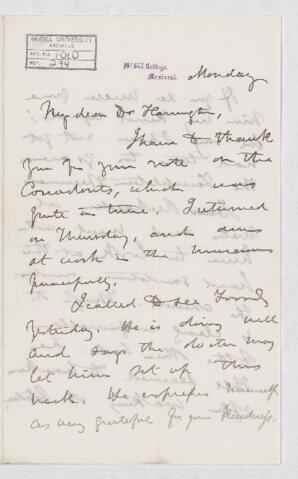 McGILL UNIVERSITY
ARCHIVES
ACC. NO. 1010
REF. 294
McGill College,
Montreal
Monday
My dear Dr Harrington,
I have to thank
you for your note on the
Conodonts, which was
quite in time. I returned
on Thursday, and am
at work in the museum
peacefully.
I called to see
yesterday He is doing well
and says the doctor may
let him sit up this
week. He expresses himself
as very grateful for your kindness.